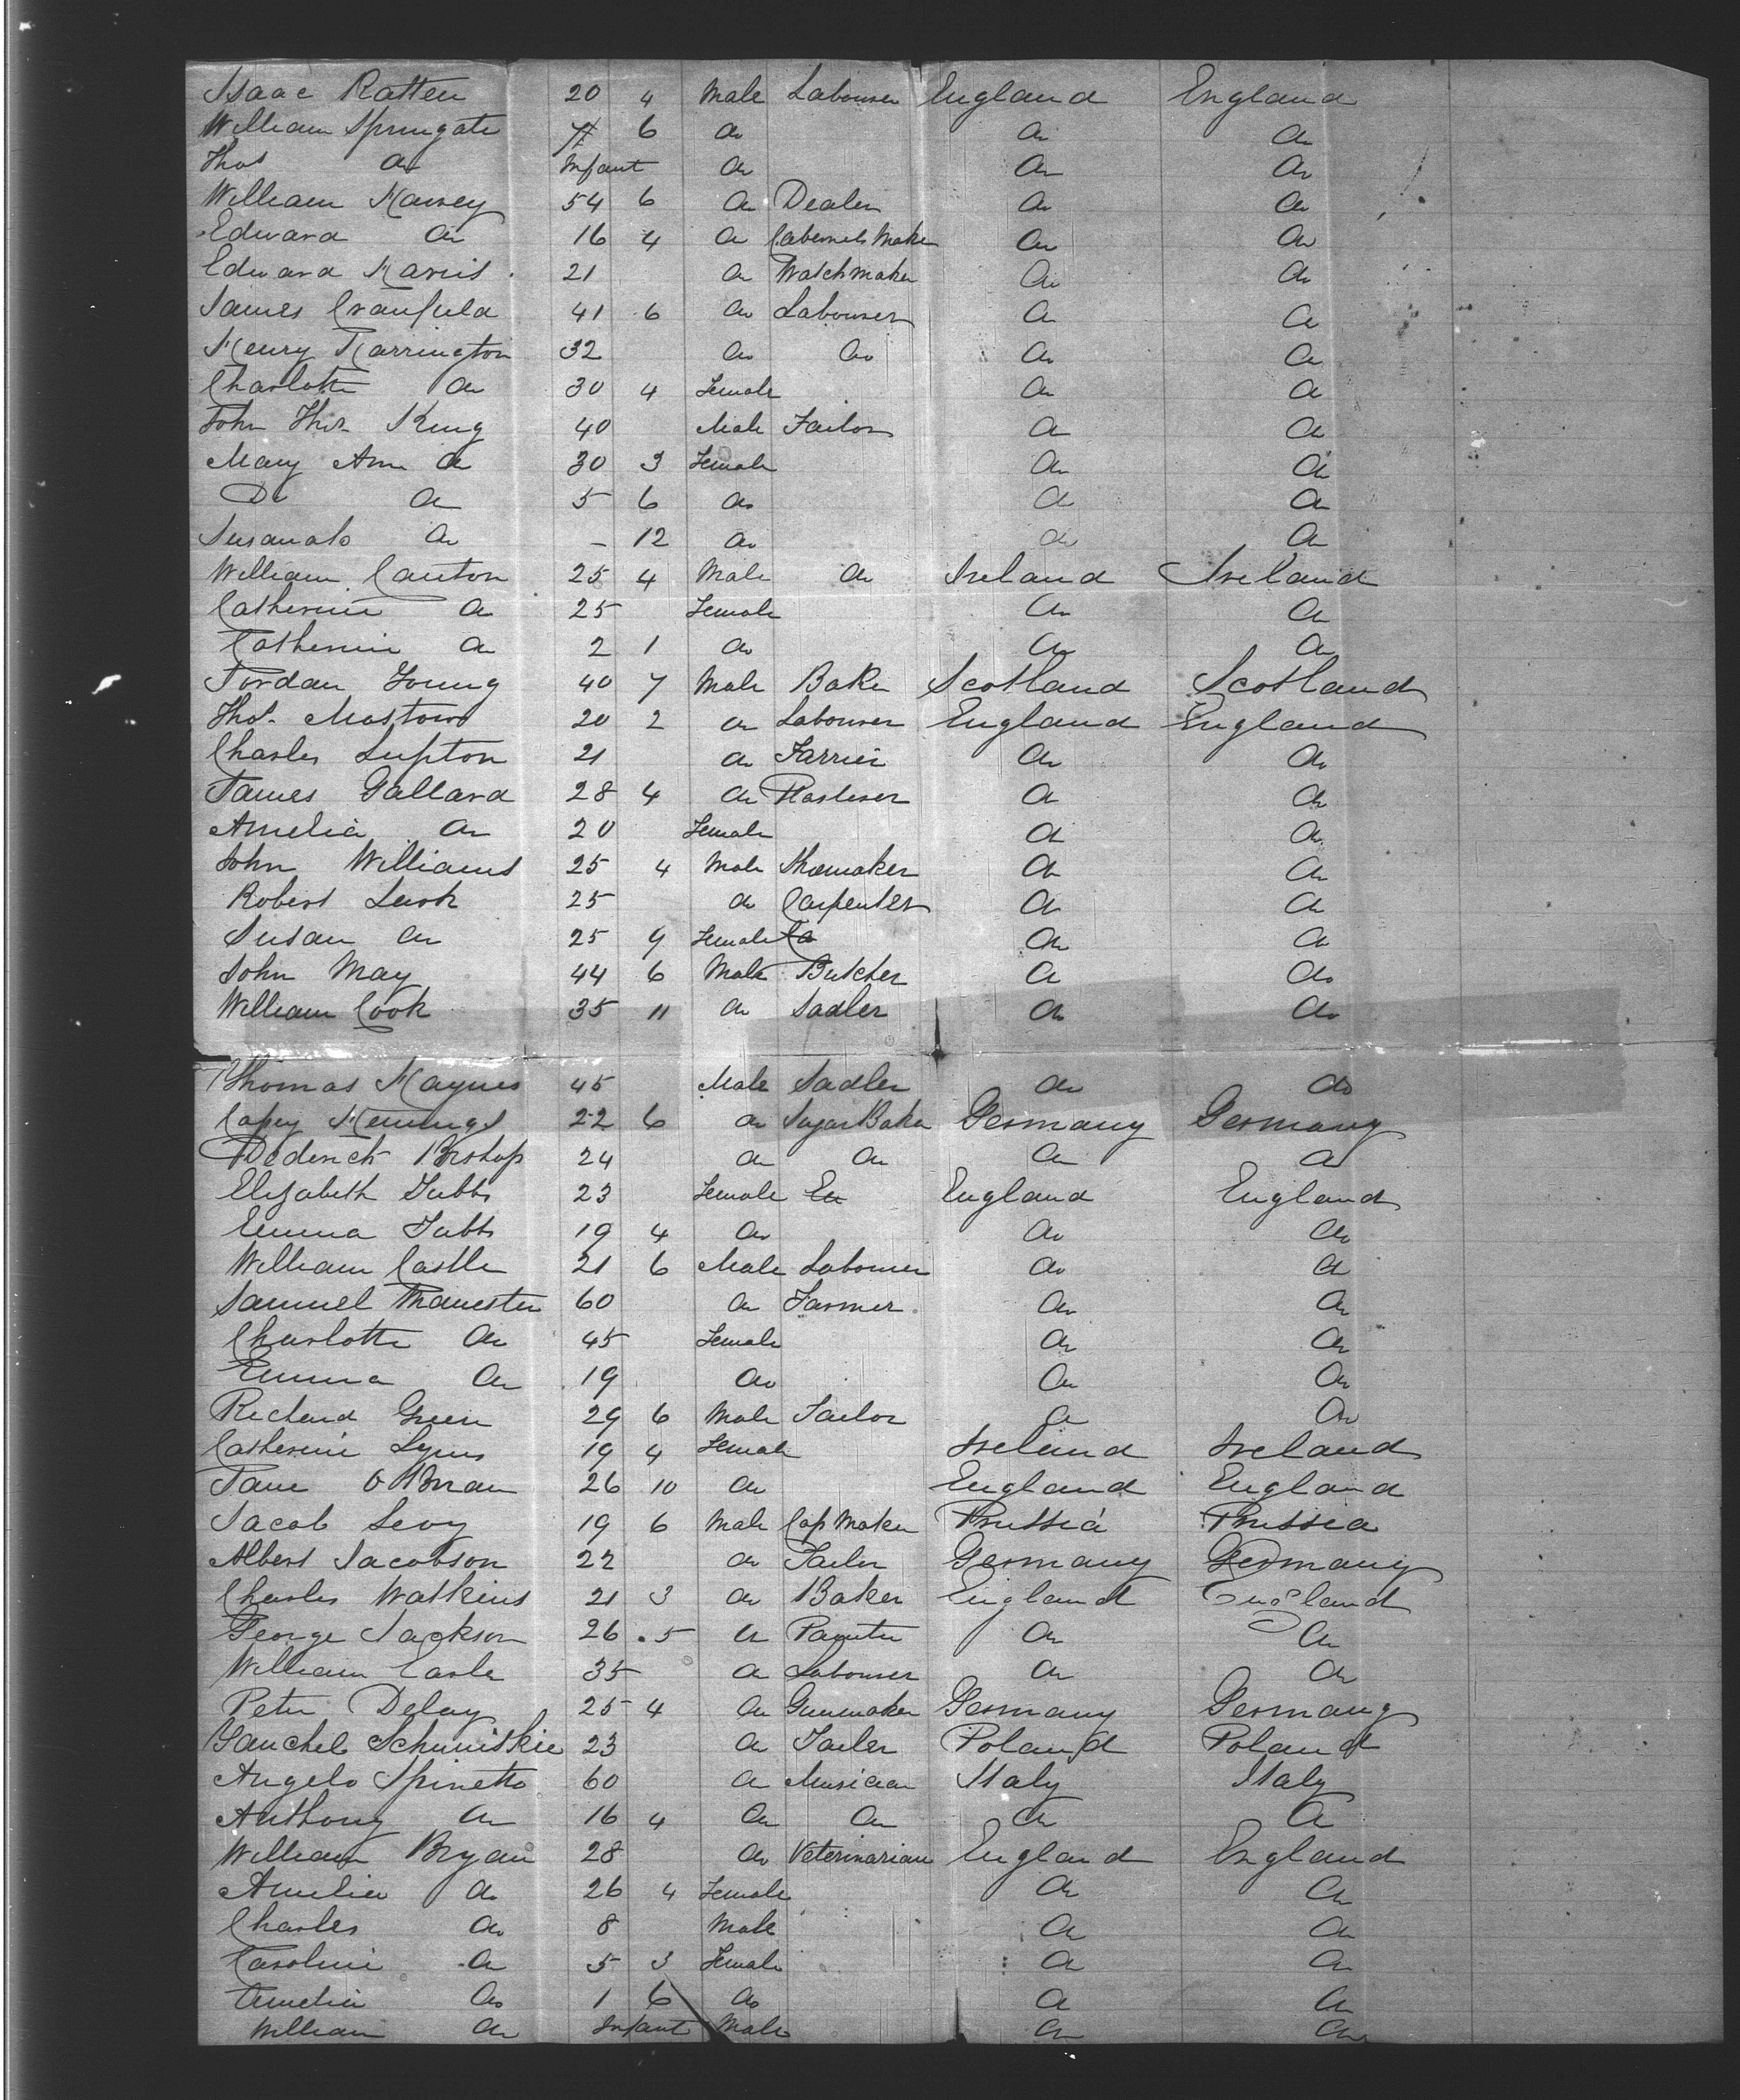 Isaac Ratten 20 4 Male Labourer England England
William Springate 6 do do do
Thos do Infant do do do
William Harvey 54 6 do Dealer do do
Edward do 16 4 do Cabinet Maker do do
Edward Harris 21 do Watchmaker do do
James Cranfield 41 6 do Labourer do do
Henry Harrington 32 do do do do
Charlotte do 30 4 Female do do
John Thos King 40 Male Tailor do do
Mary Ann do 30 3 Female do do
Do do 5 6 do do do
Susanah do - 12 do do do
William Canton 25 4 Male do Ireland Ireland
Catherine do 25 Female do do
Catherine do 2 1 do do do
Jordan Young 40 7 Male Baker Scotland Scotland
Thos. 20 2 do Labourer England England
Charles Lupton 21 do Farrier do do
James Gallard 28 4 do Plasterer do do
Amelia do 20 Female do do
John Williams 25 4 Male Shoemaker do do
Robert 25 do Carpenter do do
Susan do 25 9 Female Ca do do
John May 44 6 Male Butcher do do
William Cook 35 11 do Sadler do do
Thomas Haynes 45 Male Sadler do do
Hennings 22 6 do Sugar Baker Germany Germany
Diederich Bishop 24 do do do do
Elizabeth Tubbs 23 Female En England England
Emma Tubbs 19 4 do do do
William Castle 21 6 Male Labourer do do
Samuel 60 do Farmer do do
Charlotte do 45 Female do do
Emma do 19 do do do
Richard Green 29 6 Male Tailor do do
Catherine Lyons 19 4 Female Ireland Ireland
Jane O Brian 26 10 do England England
Jacob Levy 19 6 Male Cap Maker Prussia Prussia
Albert Jacobson 22 do Tailor Germany Germany
Charles Watkins 21 3 do Baker England England
George Jackson 26 5 do Painter do do
William Earle 35 do Labourer do do
Peter Delay 25 4 do Gunmaker Germany Germany
Schiminskie 23 do Tailer Poland Poland
Angelo Spinetto 60 do Musician Italy Italy
Anthony do 16 4 do do do do
William Bryan 28 do Veterinarian England England
Amelia do 26 4 Female do do
Charles do 8 Male do do
Caroline do 5 3 Female do do
Amelia do 1 6 do do do
William do Infant Male do do